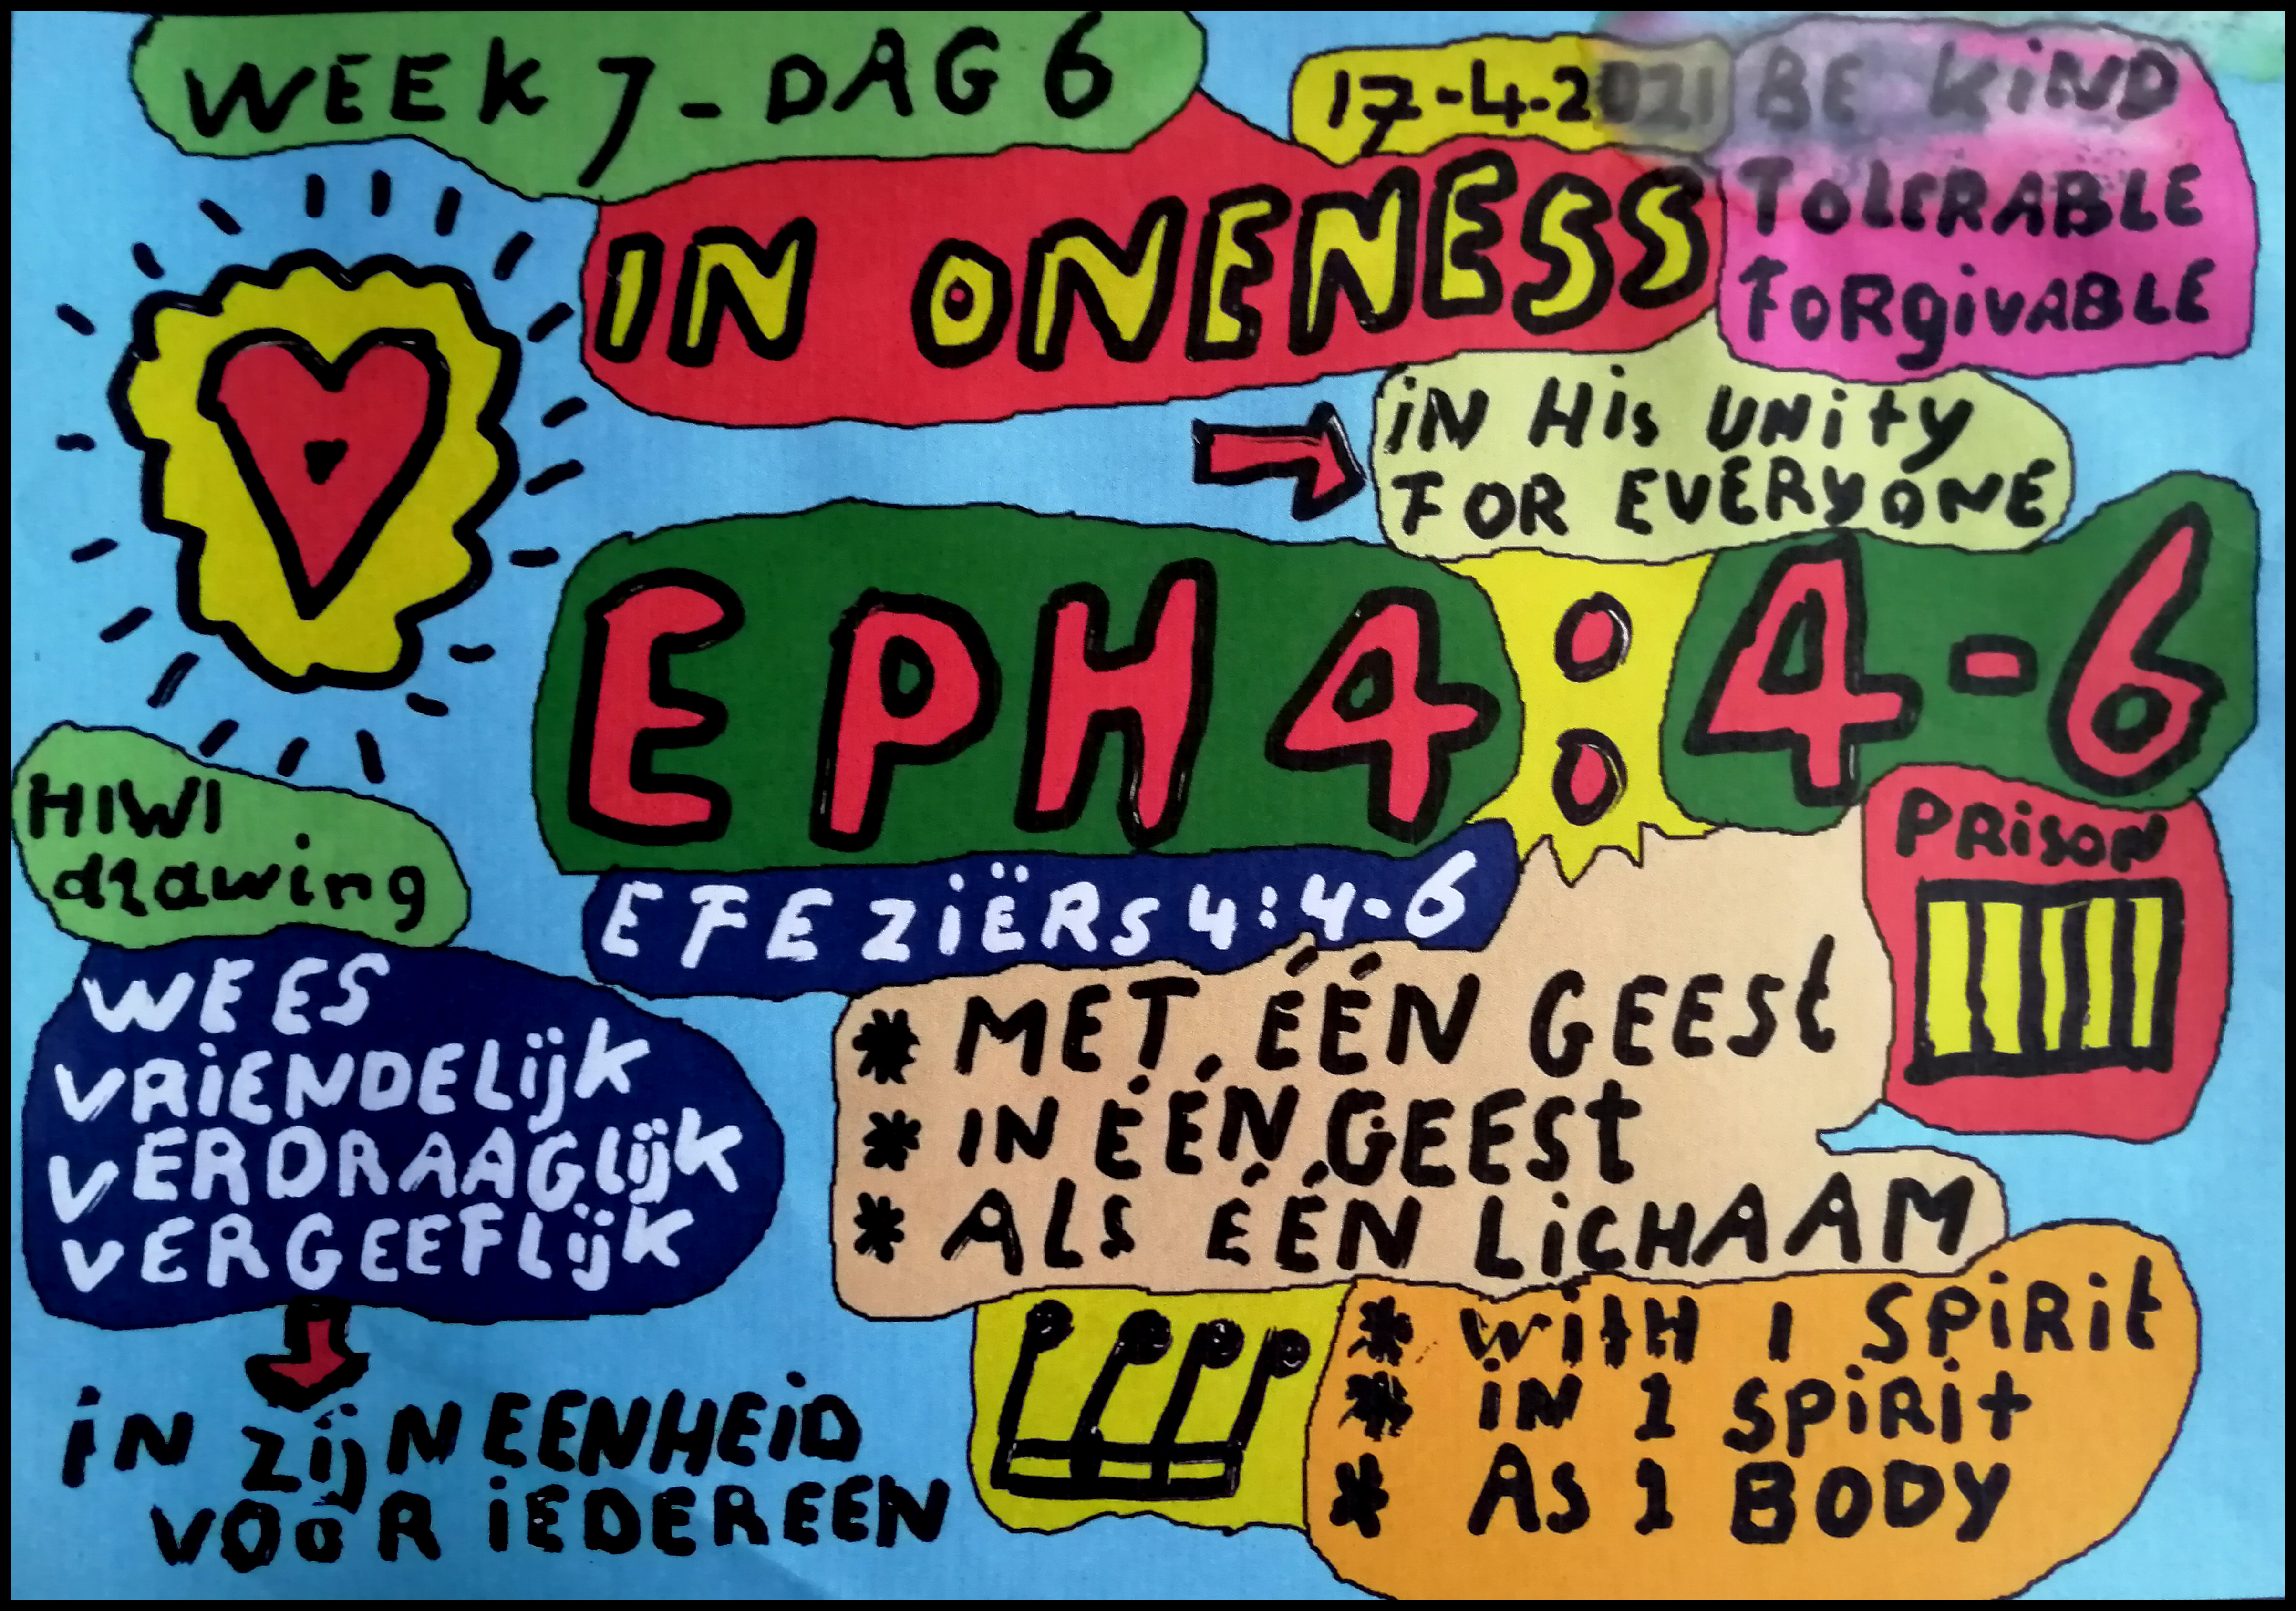 WEEK 7 - DAG 6
17-4-2021
BE KiND
TOLERABLE
FORgiVABLE
IN ONENESS
iN His UNity
FOR EVERYONE
EPH 4:4-6
HIWI
drawing
EFEZiËRS 4:4-6
PRiSON
WEES
VRiENDELijK
VERDRAAGLijK
VERGEEFLijK
* MET ÉÉN GEESt
* IN ÉÉN GEESt
* ALS ÉÉN LiCHAAM
iN ZijN EENHEiD
VOOR iEDEREEN
* WitH 1 SPiRit
* iN 1 SPiRit
* AS 1 BODY